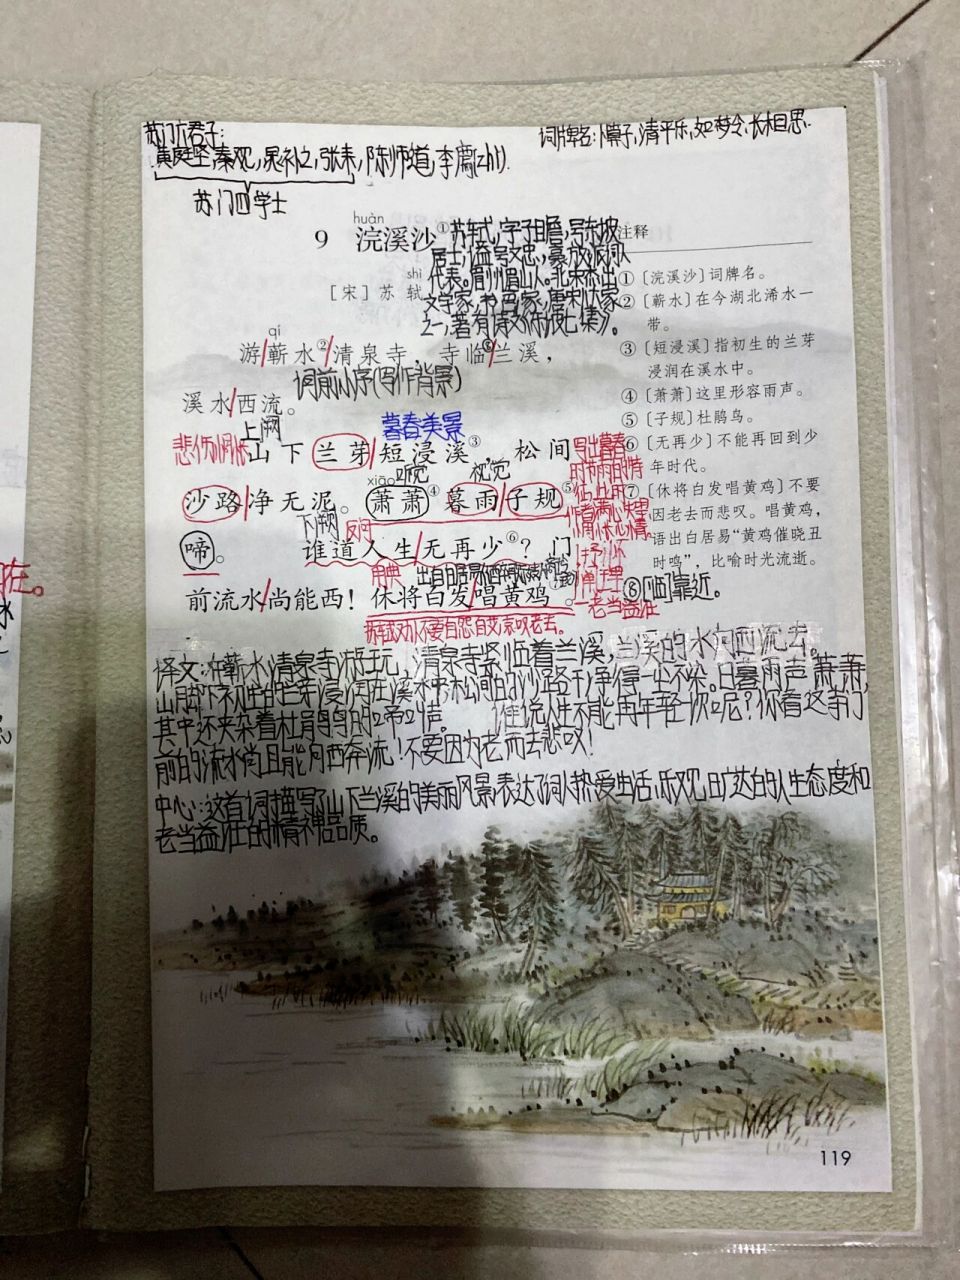 苏门六君子：
黄庭坚，秦观，晁补之，张耒，陈师道，李廌(zhì)．
苏门四学士
词牌名：卜算子，清平乐，如梦令，长相思．
huàn
9 浣溪沙①
苏轼，字子瞻，号东坡
居士，谥号文忠，豪放派词人
代表。眉州眉山人。北宋杰出
文学家，书画家，唐宋八大家
之一，著有诗文《东坡七集》。
shì
［宋］苏轼
qí
游/蕲水②/清泉寺，寺临⑧/兰溪，
溪水/西流。
词前小序(写作背景)
上阕
暮春美景
山下兰芽/短浸溪③，松间
听觉 视觉
xiāo
沙路/净无泥。萧萧④暮雨/子规⑤
下阕 反问
啼。 谁道人生/无再少⑥？门
用典
前流水/尚能西！休将白发/唱黄鸡⑦。
写出暮春
注释
①〔浣溪沙〕词牌名。
②〔蕲水〕在今湖北浠水一
带。
③〔短浸溪〕指初生的兰芽
浸润在溪水中。
④〔萧萧〕这里形容雨声。
⑤〔子规〕杜鹃鸟。
⑥〔无再少〕不能再回到少
年时代。
⑦〔休将白发唱黄鸡〕不要
因老去而悲叹。唱黄鸡，
语出白居易“黄鸡催晓丑
时鸣”，比喻时光流逝。
⑧〔临〕靠近。
译文：在蕲水清泉寺游玩，清泉寺紧临着兰溪，兰溪的水向西流去。
山脚下初生的兰芽浸润在溪水中，松间的沙路干净得一尘不染。日暮雨声萧萧，
其中还夹杂着杜鹃鸟的啼叫声。谁说人生不能再年轻一次呢？你看这寺门
前的流水尚且能向西奔流！不要因为老而去悲叹！
中心：这首词描写了山下兰溪的美丽风景，表达了词人热爱生活，乐观，旷达的人生态度和
老当益壮的精神品质。
119